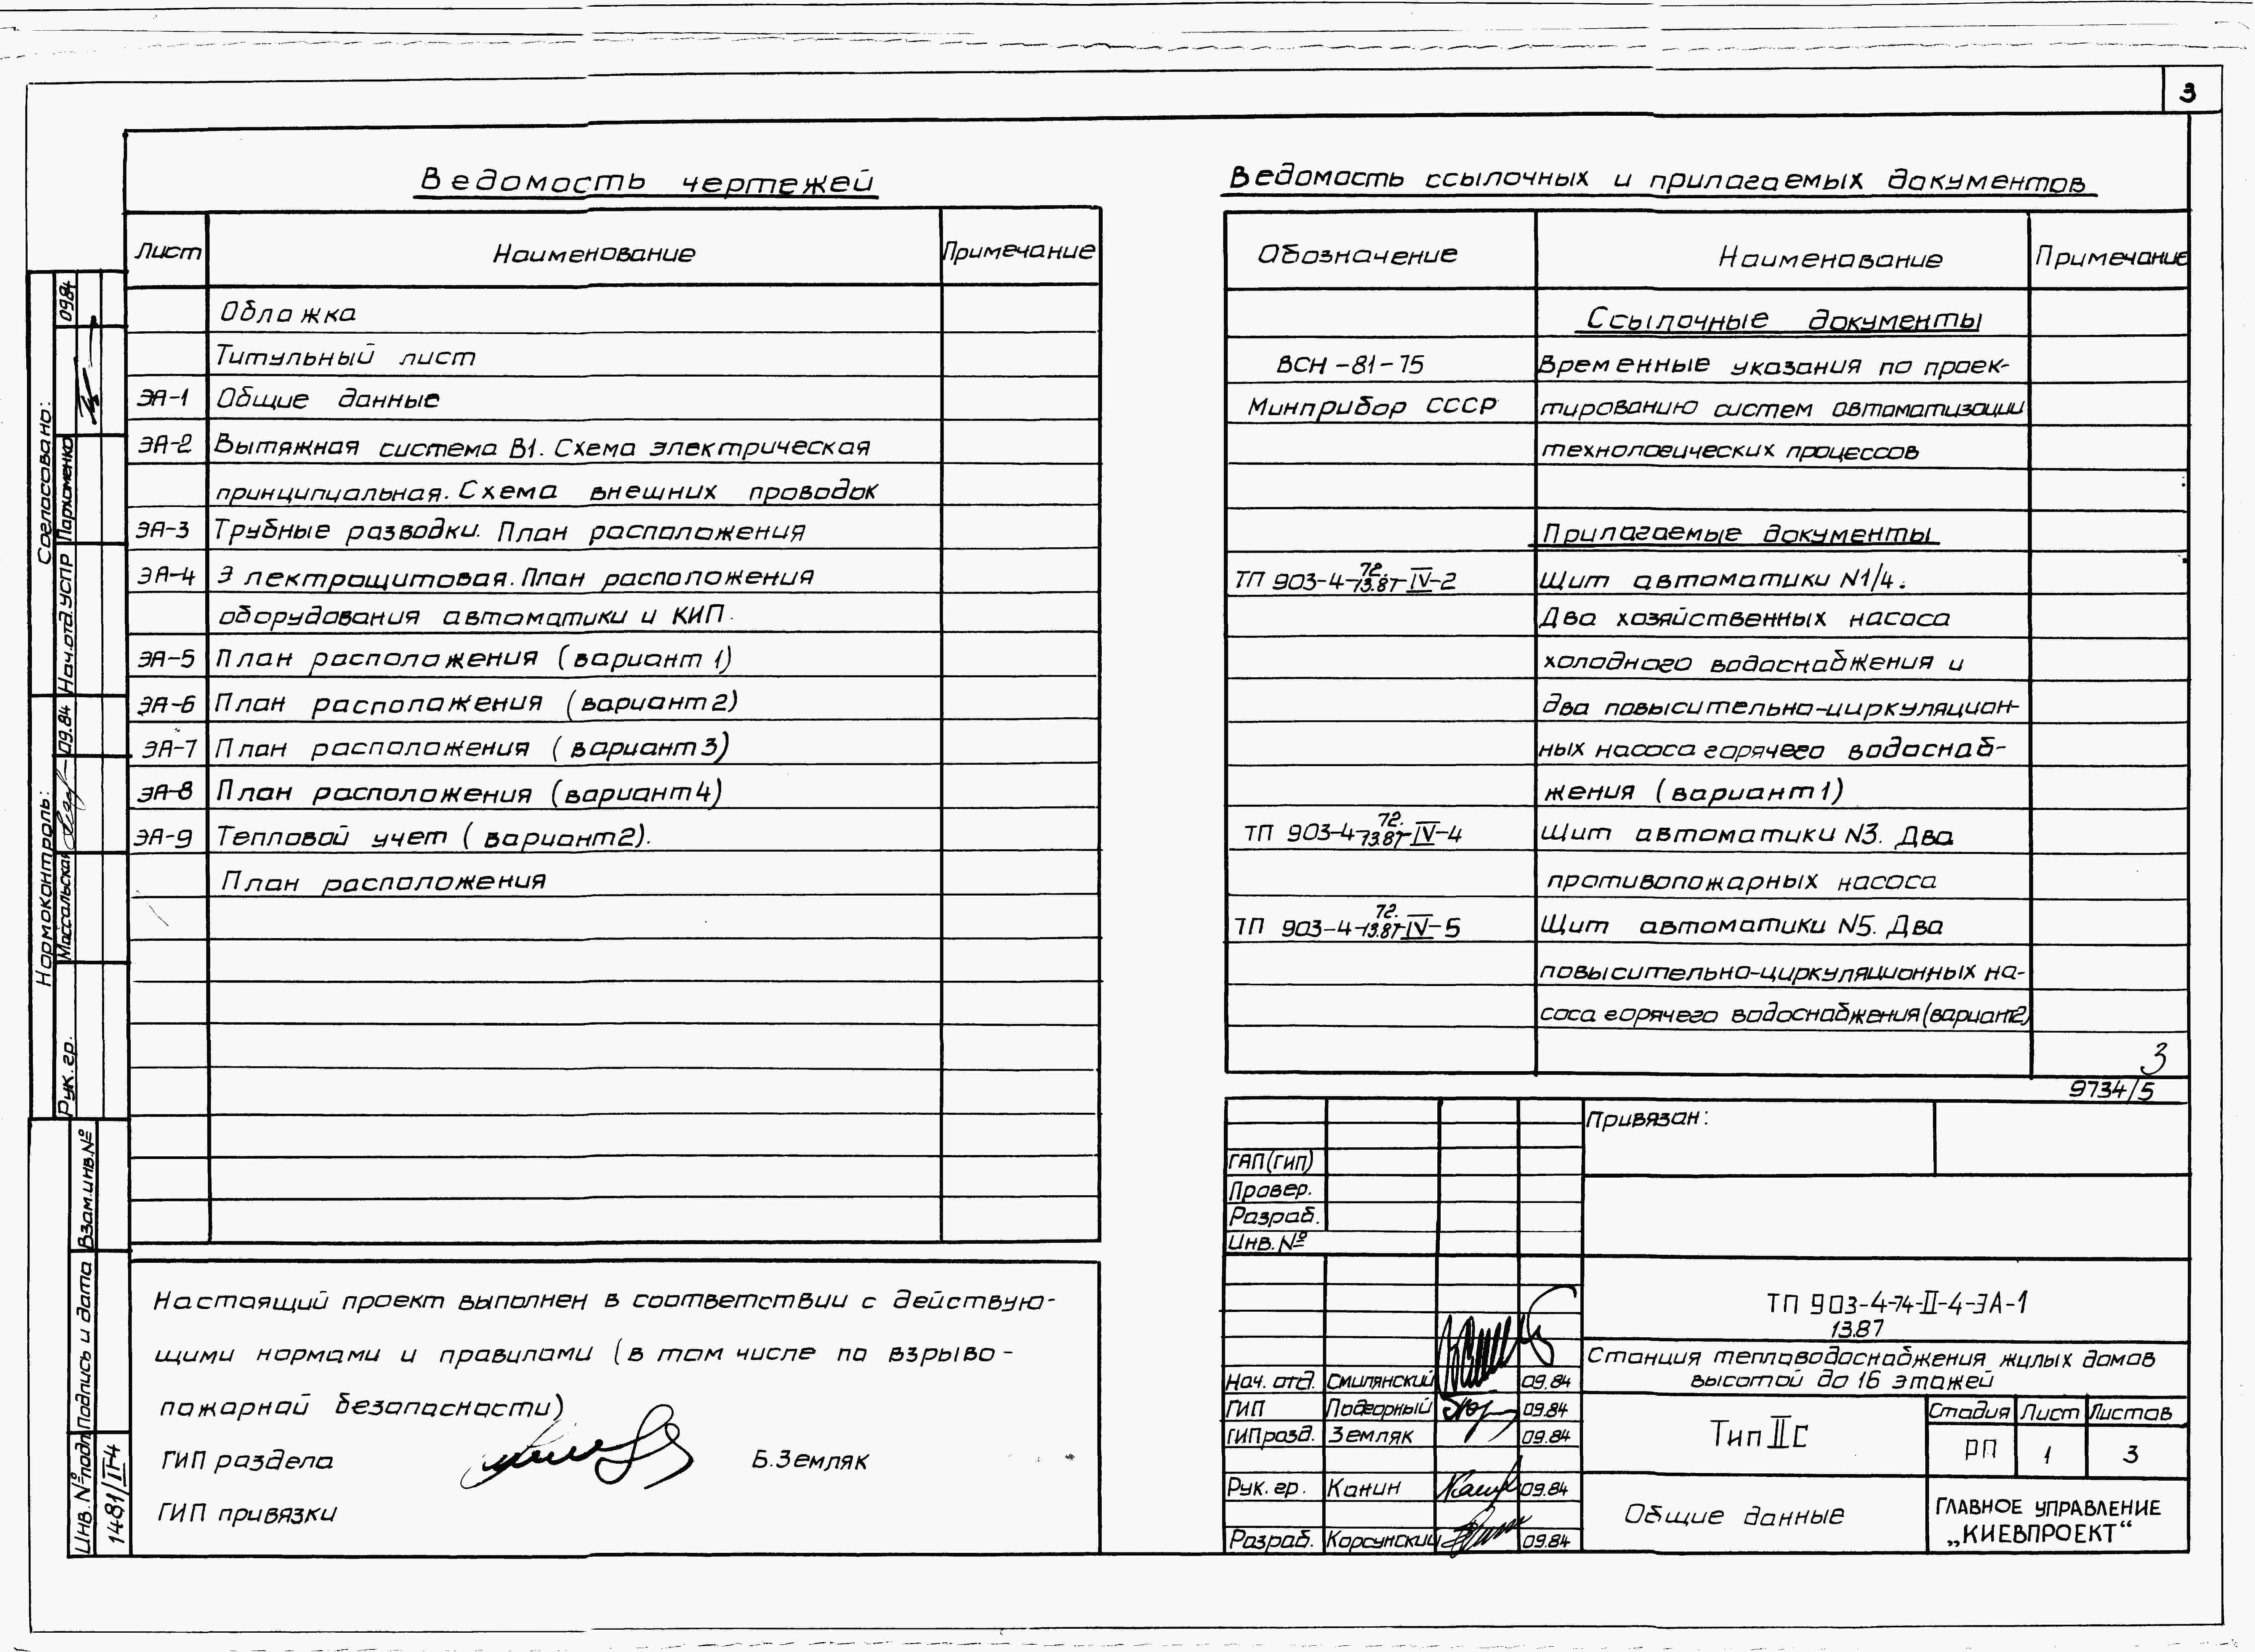 3
Ведомость чертежей
Лист Наименование Примечание
Обложка
Титульный лист
ЭА-1 Общие данные
ЭА-2 Вытяжная система В1. Схема электрическая
принципиальная. Схема внешних проводок
ЭА-3 Трубные разводки. План расположения
ЭА-4 Электрощитовая. План расположения
оборудования автоматики и КИП.
ЭА-5 План расположения (вариант 1)
ЭА-6 План расположения (вариант 2)
ЭА-7 План расположения (вариант 3)
ЭА-8 План расположения (вариант 4)
ЭА-9 Тепловой учет (вариант 2).
План расположения
Настоящий проект выполнен в соответствии с действую-
щими нормами и правилами (в том числе по взрыво-
пожарной безопасности)
ГИП раздела Б. Земляк
ГИП привязки
Ведомость ссылочных и прилагаемых документов
Обозначение Наименование Примечание
Ссылочные документы
ВСН-81-75 Временные указания по проек-
Минприбор СССР тированию систем автоматизации
технологических процессов
Прилагаемые документы
ТП 903-4-72.13.87-IV-2 Щит автоматики N1/4.
Два хозяйственных насоса
холодного водоснабжения и
два повысительно-циркуляцион-
ных насоса горячего водоснаб-
жения (вариант 1)
ТП 903-4-72.13.87-IV-4 Щит автоматики N3. Два
противопожарных насоса
ТП 903-4-72.13.87-IV-5 Щит автоматики N5. Два
повысительно-циркуляционных на-
соса горячего водоснабжения (вариант 2)
3
9734/5
Привязан:
ГАП(ГИП)
Провер.
Разраб.
Инв. №
ТП 903-4-74-II-4-ЭА-1
13.87
Станция тепловодоснабжения жилых домов
высотой до 16 этажей
Нач. отд. Смилянский 09.84
ГИП Подгорный 09.84
ГИП розд. Земляк 09.84
Рук. гр. Канин 09.84
Разраб. Корсунский 09.84
Тип II С
Стадия Лист Листов
РП 1 3
Общие данные
ГЛАВНОЕ УПРАВЛЕНИЕ
„КИЕВПРОЕКТ“
Согласовано:
Нач. отд. УСПР Пархоменко 0984
Нормоконтроль:
Рук. гр. Массальская 09.84
Взам. инв. №
Подпись и дата
Инв. № подл.
1481/II-4